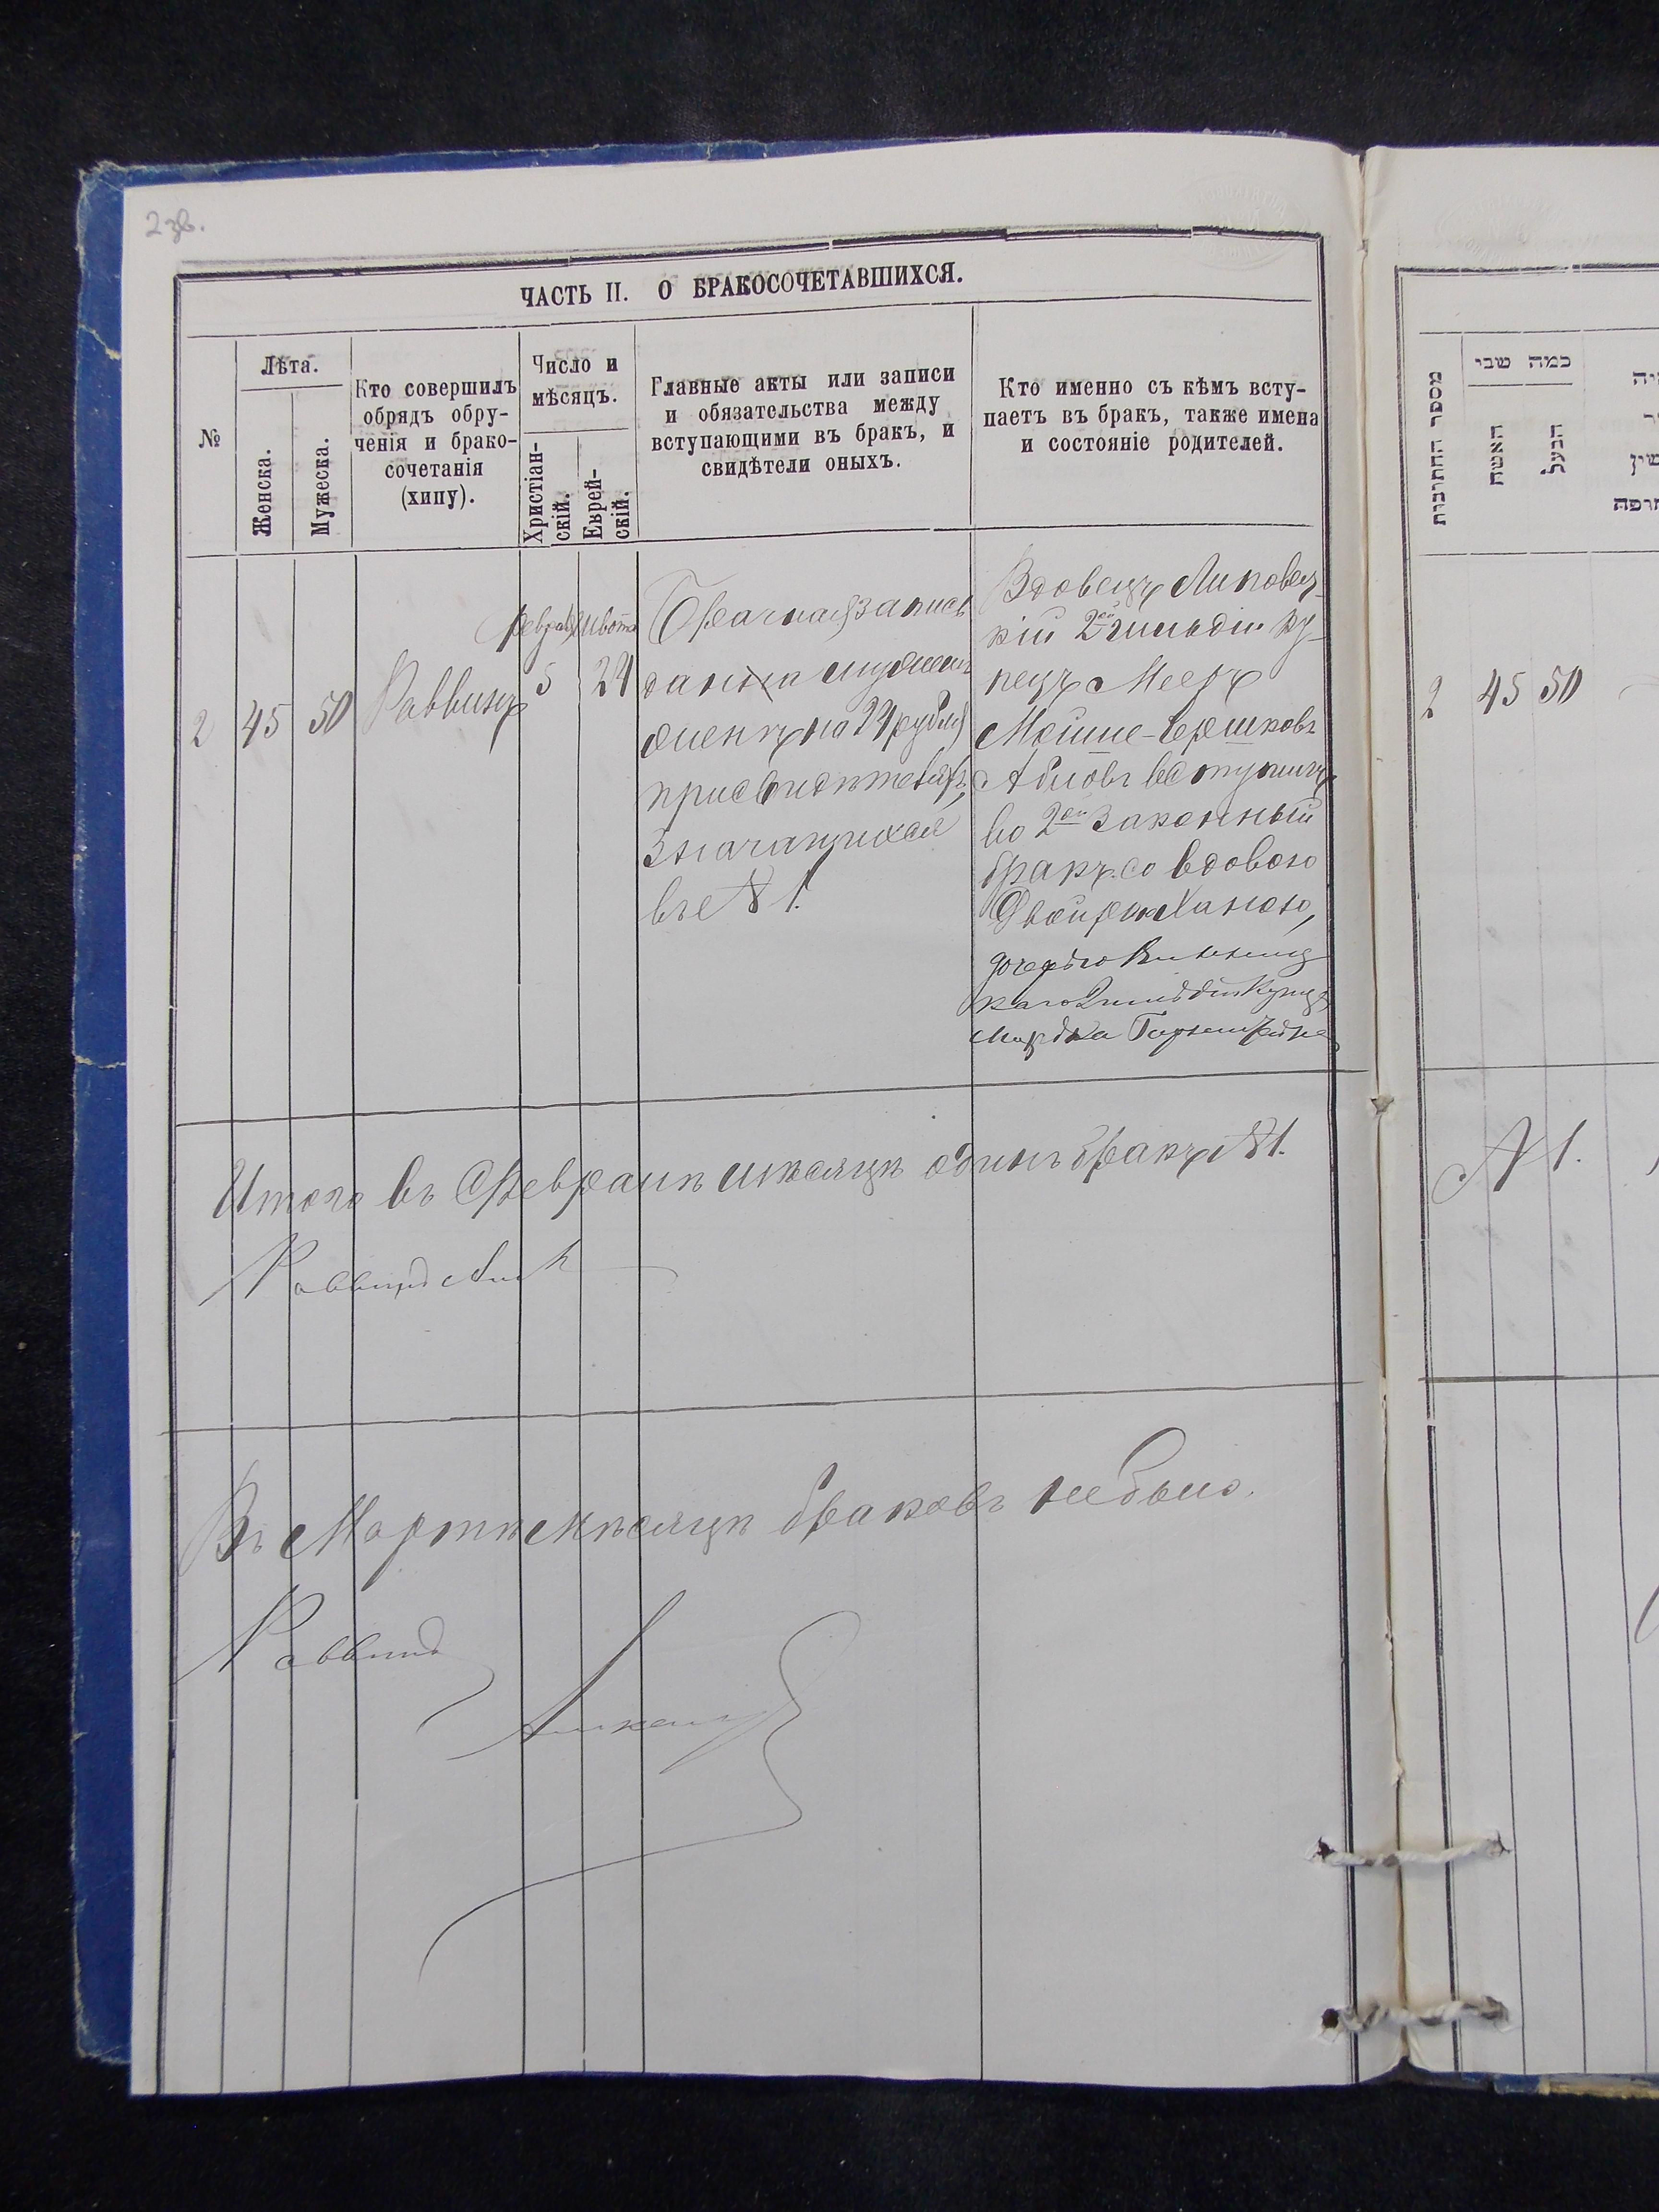 2 зв.
ЧАСТЬ II. О БРАКОСОЧЕТАВШИХСЯ.
№
Лѣта.
Женска.
Мужеска.
Кто совершилъ
обрядъ обру-
ченія и брако-
сочетанія
(хипу).
Число и
мѣсяцъ.
Христіан-
скій.
Еврей-
скій.
Главные акты или записи
и обязательства между
вступающими въ бракъ, и
свидѣтели оныхъ.
Кто именно съ кѣмъ всту-
паетъ въ бракъ, также имена
и состояніе родителей.
2
45
50
Раввинъ
Февраля
5
Швота
24
Брачная запись
дана мужемъ
женѣ на 24 рубля
при свидѣтеляхъ,
значащихся
въ № 1.
Вдовецъ Липовец-
кій 2ой гильдіи ку-
пецъ Мееръ
Мойше-Гершковъ
вступилъ
во 2ой законный
бракъ со вдовою
Двойрою Ханою,
дочерью Винниц
каго 2 гильдіи купца
Мордка
Итого въ Февралѣ мѣсяцѣ одинъ бракъ № 1.
Раввинъ
Въ Мартѣ мѣсяцѣ браковъ не было.
Раввинъ
מספר החתונות
כמה שני
האשה
הבעל
2
45
50
№ 1.